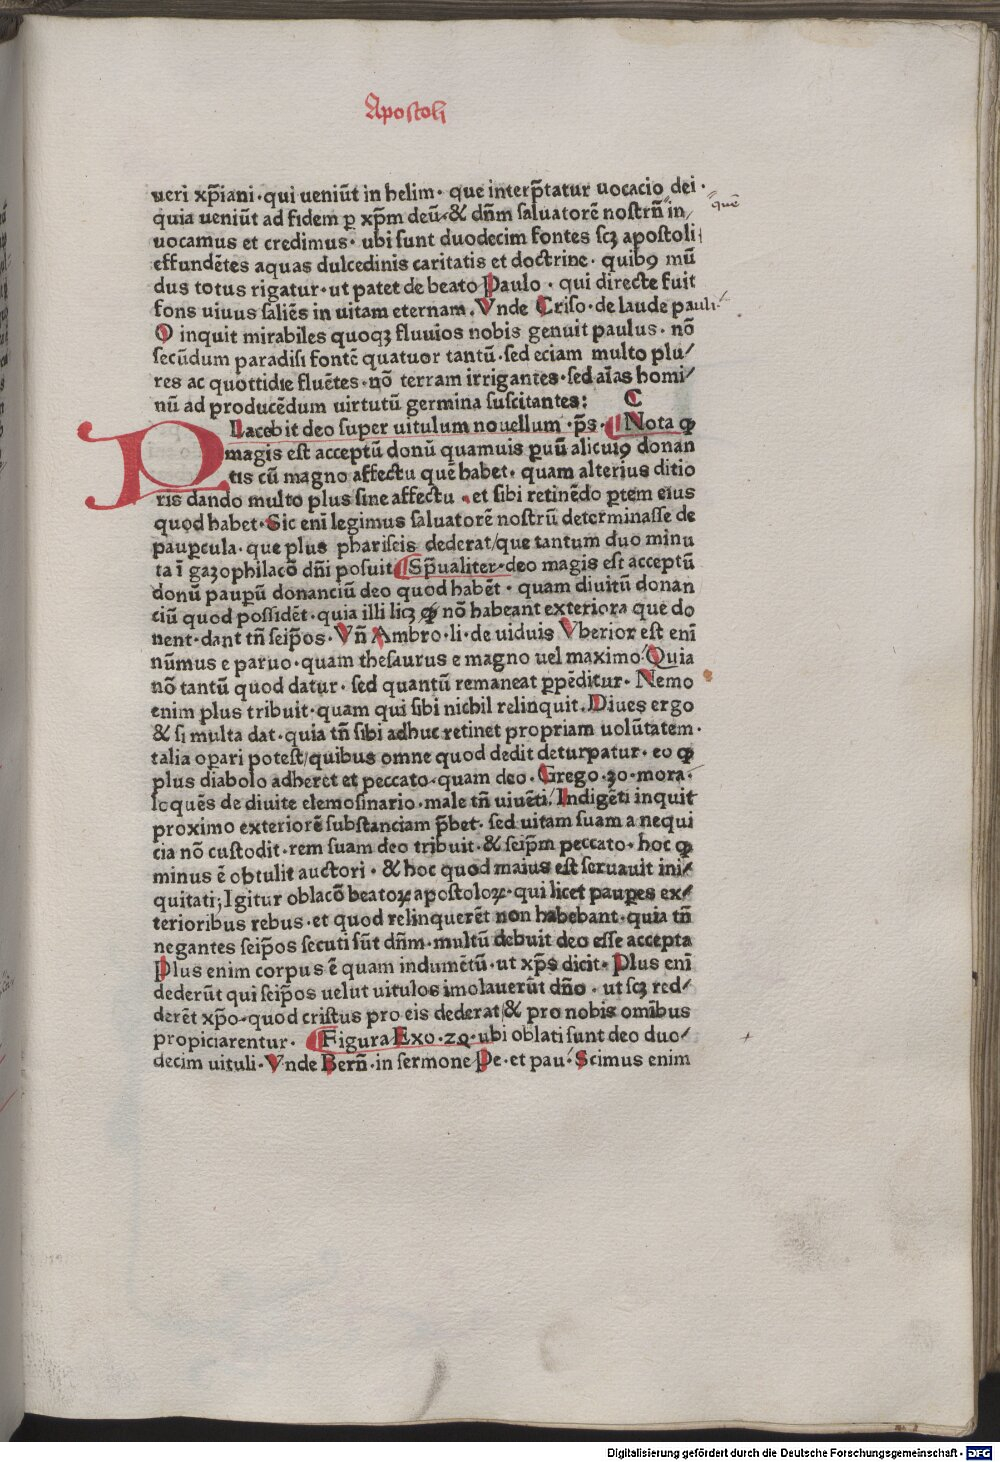 Apostoli
ueri xp̄iani·qui ueniūt in helim· que interp̄tatur uocacio dei·
quē
quia ueniūt ad fidem ꝑ xp̄m deū·& dn̄m saluatorē nostrn̄ in/
uocamus et credimus· ubi sunt duodecim fontes scꝫ apostoli
effundētes aquas dulcedinis caritatis et doctrine· quibꝯ mū
dus totus rigatur·ut patet de beato Paulo · qui directe fuit
fons uiuus saliēs in uitam eternam. Vnde Criso·de laude pauli·
O inquit mirabiles quoqꝫ fluuios nobis genuit paulus· nō
secūdum paradisi fontē quatuor tantū·sed eciam multo plu/
res ac quottidie fluētes·nō terram irrigantes·sed aīas homi/
nū ad producēdum uirtutū germina suscitantes: C
PLacebit deo super uitulum nouellum · p̄s· Nota ꝙ
magis est acceptū donū quamuis ꝑuū alicuiꝯ donan
tis cū magno affectu quē habet· quam alterius ditio
ris dando multo plus sine affectu ·et sibi retinēdo ꝑtem eius
quod habet·Sic enī legimus saluatorē nostrū determinasse de
pauꝑcula·que plus phariseis dederat/que tantum duo minu
ta ī gazophilacō dn̄i posuit Sp̄ualiter·deo magis est acceptū
donū pauꝑū donanciū deo quod habēt · quam diuitū donan
ciū quod possidēt·quia illi licꝫ ꝙ nō habeant exteriora que do
nent·dant tn̄ seip̄os·Vn̄ Ambro·li·de uiduis Vberior est enī
nūmus e paruo·quam thesaurus e magno uel maximo·Quia
nō tantū quod datur· sed quantū remaneat ꝑpēditur· Nemo
enim plus tribuit·quam qui sibi nichil relinquit. Diues ergo
& si multa dat·quia tn̄ sibi adhuc retinet propriam uolūtatem·
talia oꝑari potest/quibus omne quod dedit deturpatur· eo ꝙ
plus diabolo adheret et peccato·quam deo·Grego·20·mora·
loquēs de diuite elemosinario·male tn̄ uiuēti. Indigēti inquit
proximo exteriorē substanciam p̄bet· sed uitam suam a nequi
cia nō custodit·rem suam deo tribuit·& seip̄m peccato· hoc ꝙ
minus ē obtulit auctori · & hoc quod maius est seruauit ini/
quitati; Igitur oblacō beatoꝝ apostoloꝝ·qui licet pauꝑes ex/
terioribus rebus·et quod relinquerēt non habebant·quia tn̄
negantes seip̄os secuti sūt dn̄m·multū debuit deo esse accepta
Plus enim corpus ē quam indumētū·ut xp̄s dicit· Plus enī
dederūt qui seip̄os uelut uitulos imolauerūt dn̄o · ut scꝫ red/
derēt xp̄o·quod cristus pro eis dederat & pro nobis omībus
propiciarentur· Figura Exo·24·ubi oblati sunt deo duo/
decim uituli·Vnde Bern̄·in sermone Pe·et pau· Scimus enim
Digitalisierung gefördert durch die Deutsche Forschungsgemeinschaft - DFG